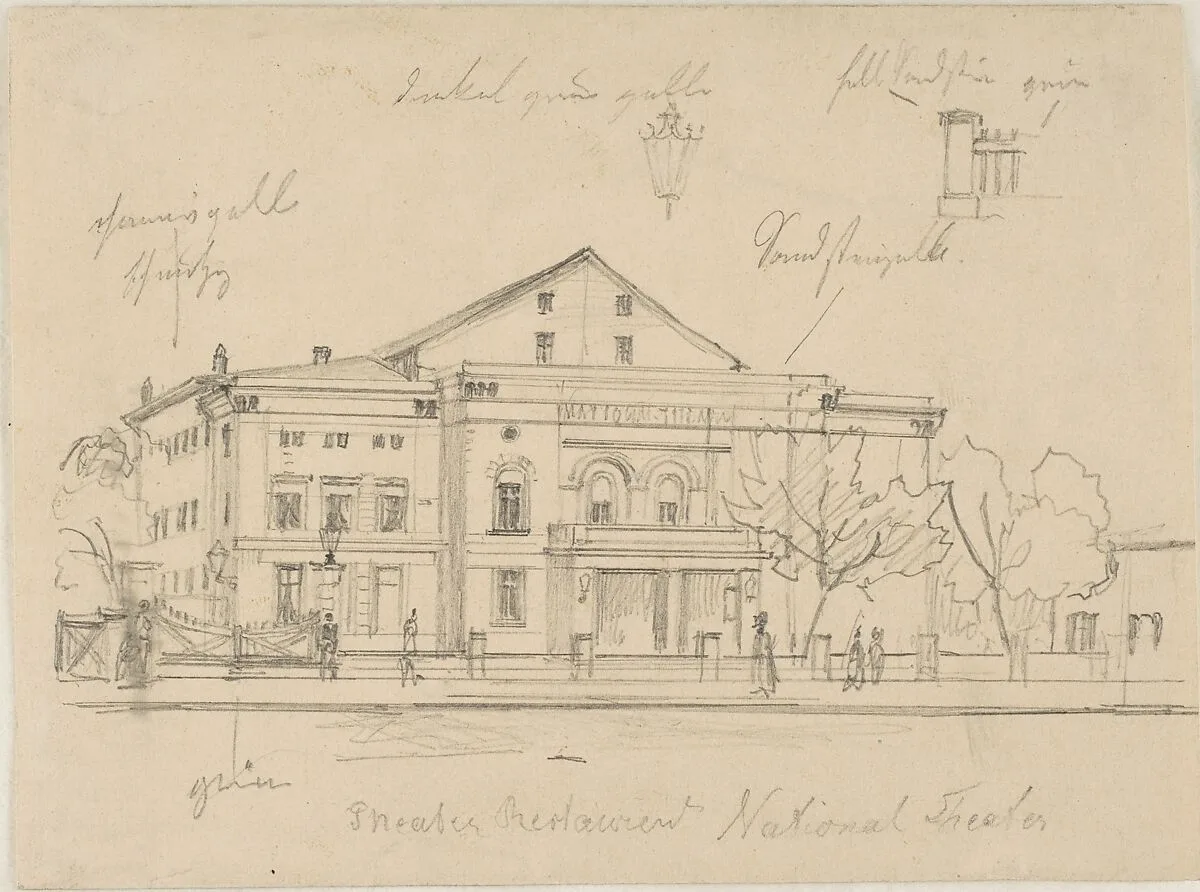 dunkel grün gelb
hell Sandstein grün
gelb
schmutzig
Sandsteingelb.
NATIONAL THEATER
grün
Theater Restaurient National Theater